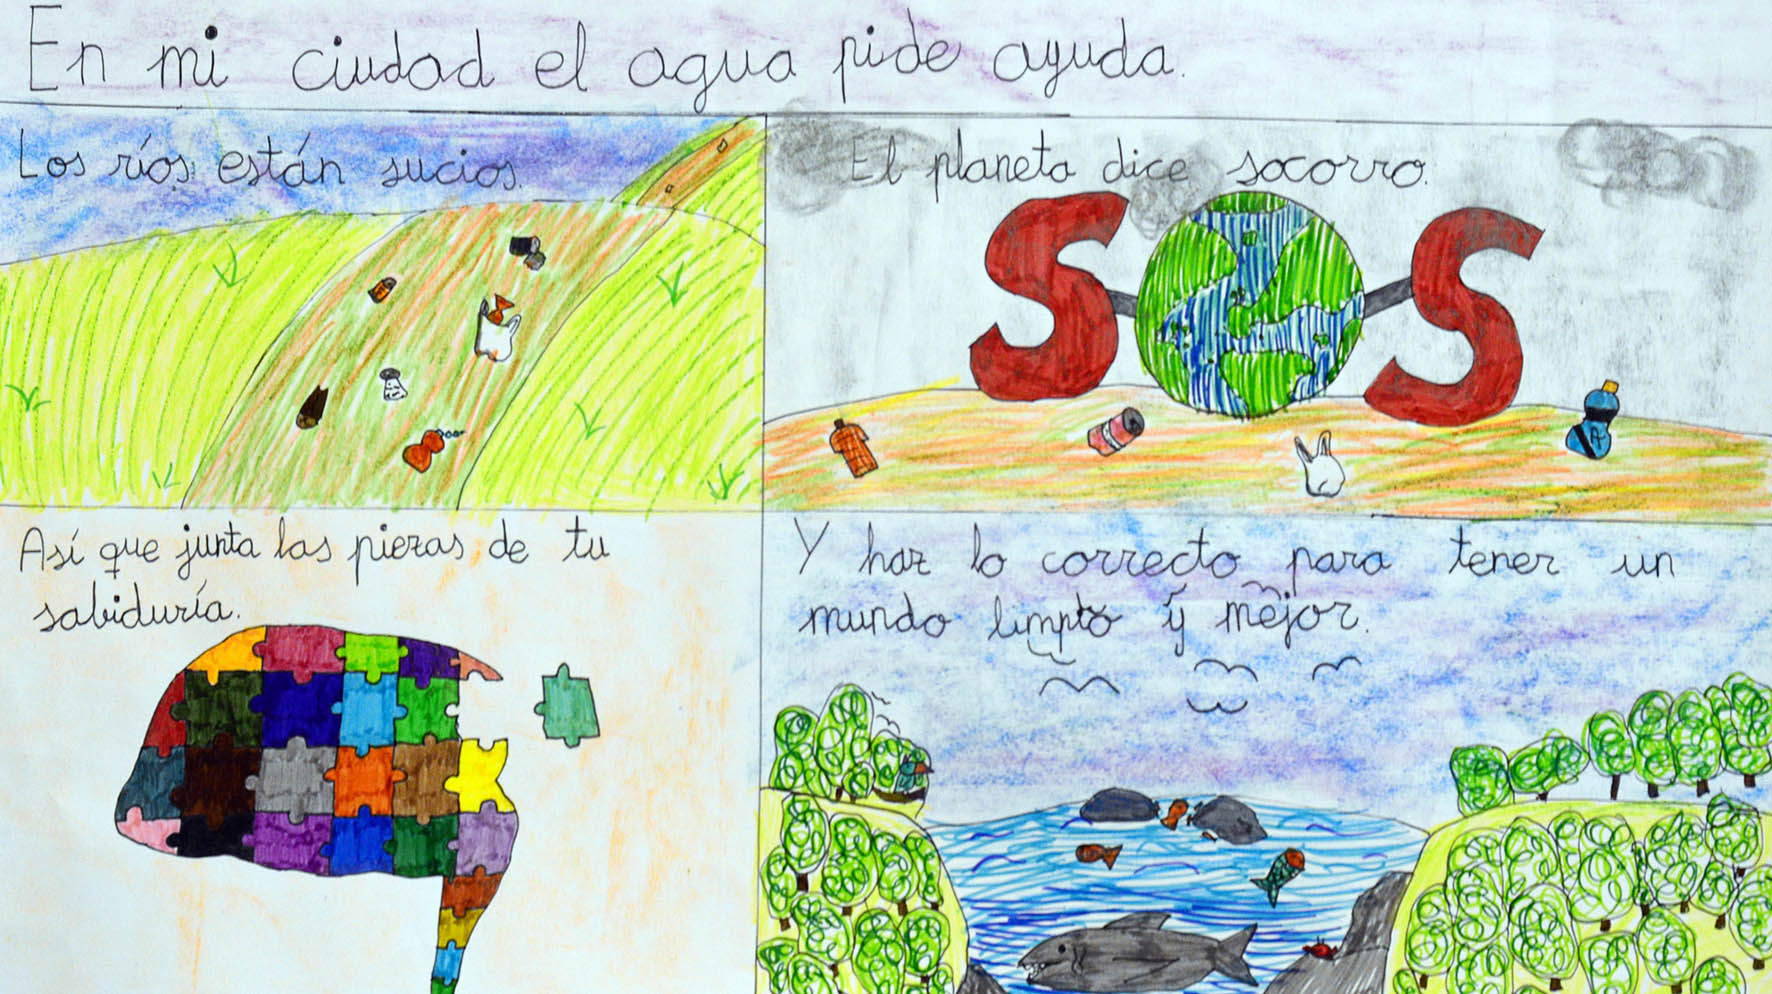 En mi ciudad el agua pide ayuda.
Los ríos están sucios.
El planeta dice socorro.
SOS
Así que junta las piezas de tu
sabiduría.
Y haz lo correcto para tener un
mundo limpio y mejor.